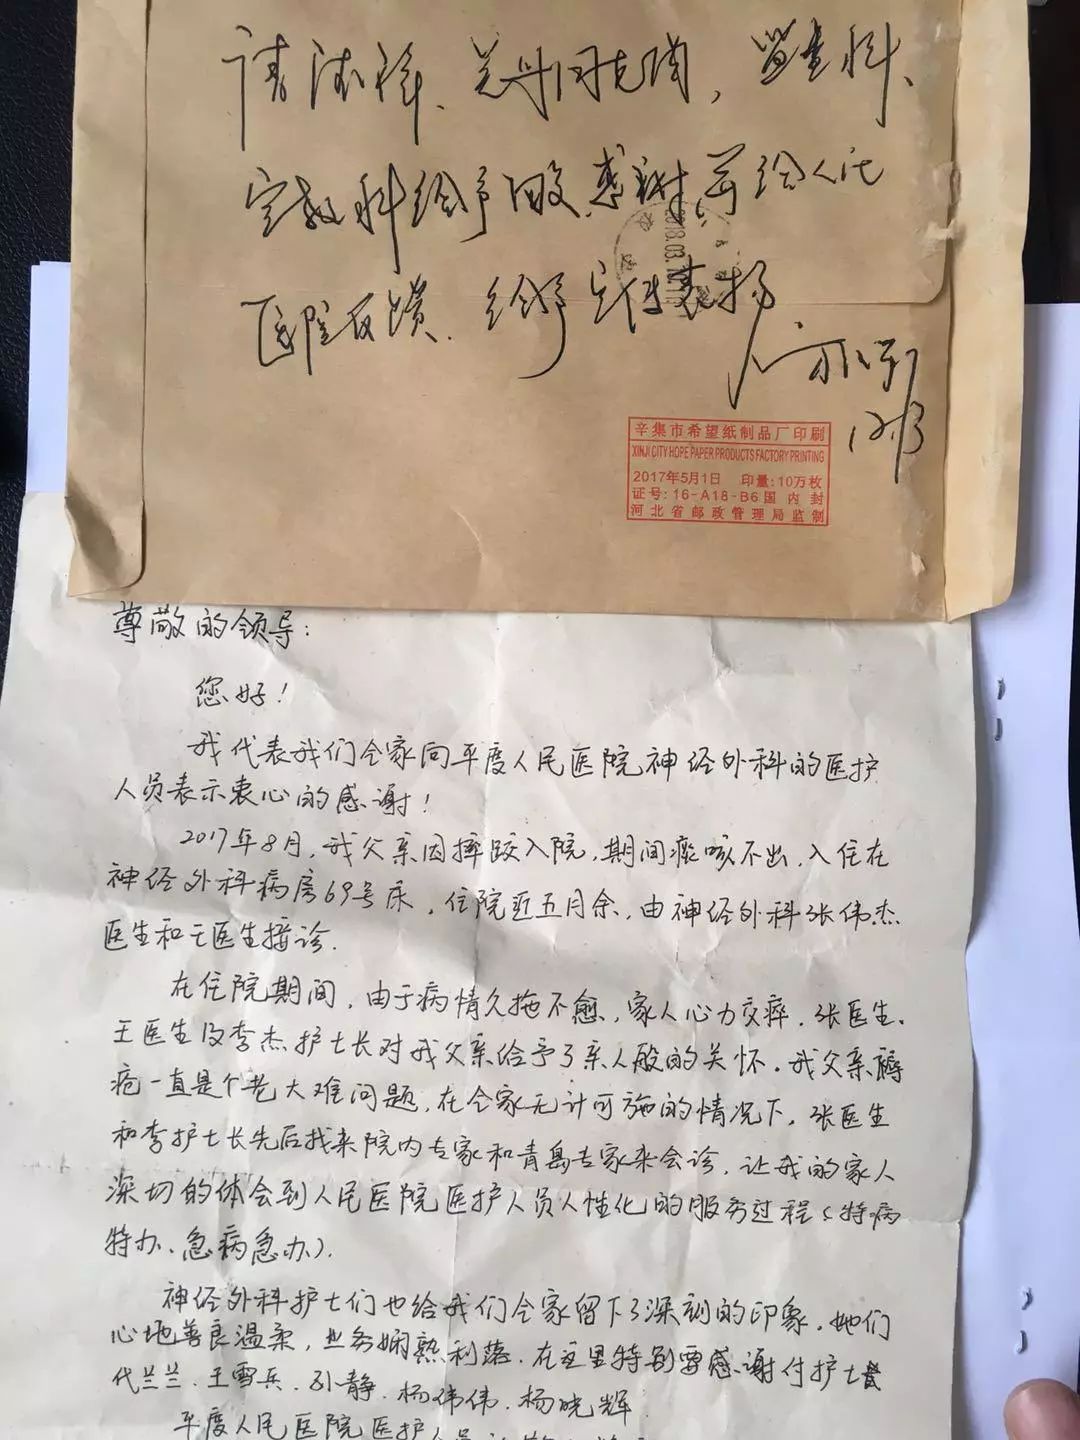 宣教科给予回复感谢并给人民
医院反馈.给予宣传表扬
12/3
2018.03.
辛集市希望纸制品厂印刷
XINJI CITY HOPE PAPER PRODUCTS FACTORY PRINTING
2017年5月1日 印量:10万枚
证号:16-A18-B6国内封
河北省邮政管理局监制
尊敬的领导:
您好!
我代表我们全家向平度人民医院神经外科的医护
人员表示衷心的感谢!
2017年8月,我父亲因摔跤入院,期间痰咳不出,入住在
神经外科病房69号床,住院近五月余,由神经外科张伟杰
医生和王医生接诊.
在住院期间,由于病情久拖不愈,家人心力交瘁.张医生、
王医生及李杰护士长对我父亲给予了亲人般的关怀.我父亲褥
疮一直是个老大难问题,在全家无计可施的情况下,张医生
和李护士长先后找来院内专家和青岛专家来会诊,让我的家人
深切的体会到人民医院医护人员人性化的服务过程(特病
特办、急病急办).
神经外科护士们也给我们全家留下了深刻的印象.她们
心地善良温柔,业务娴熟利落.在这里特别需感谢付护士长
代兰兰.王雪兵.孙静.杨伟伟.杨晓辉
平度人民医院医护人员